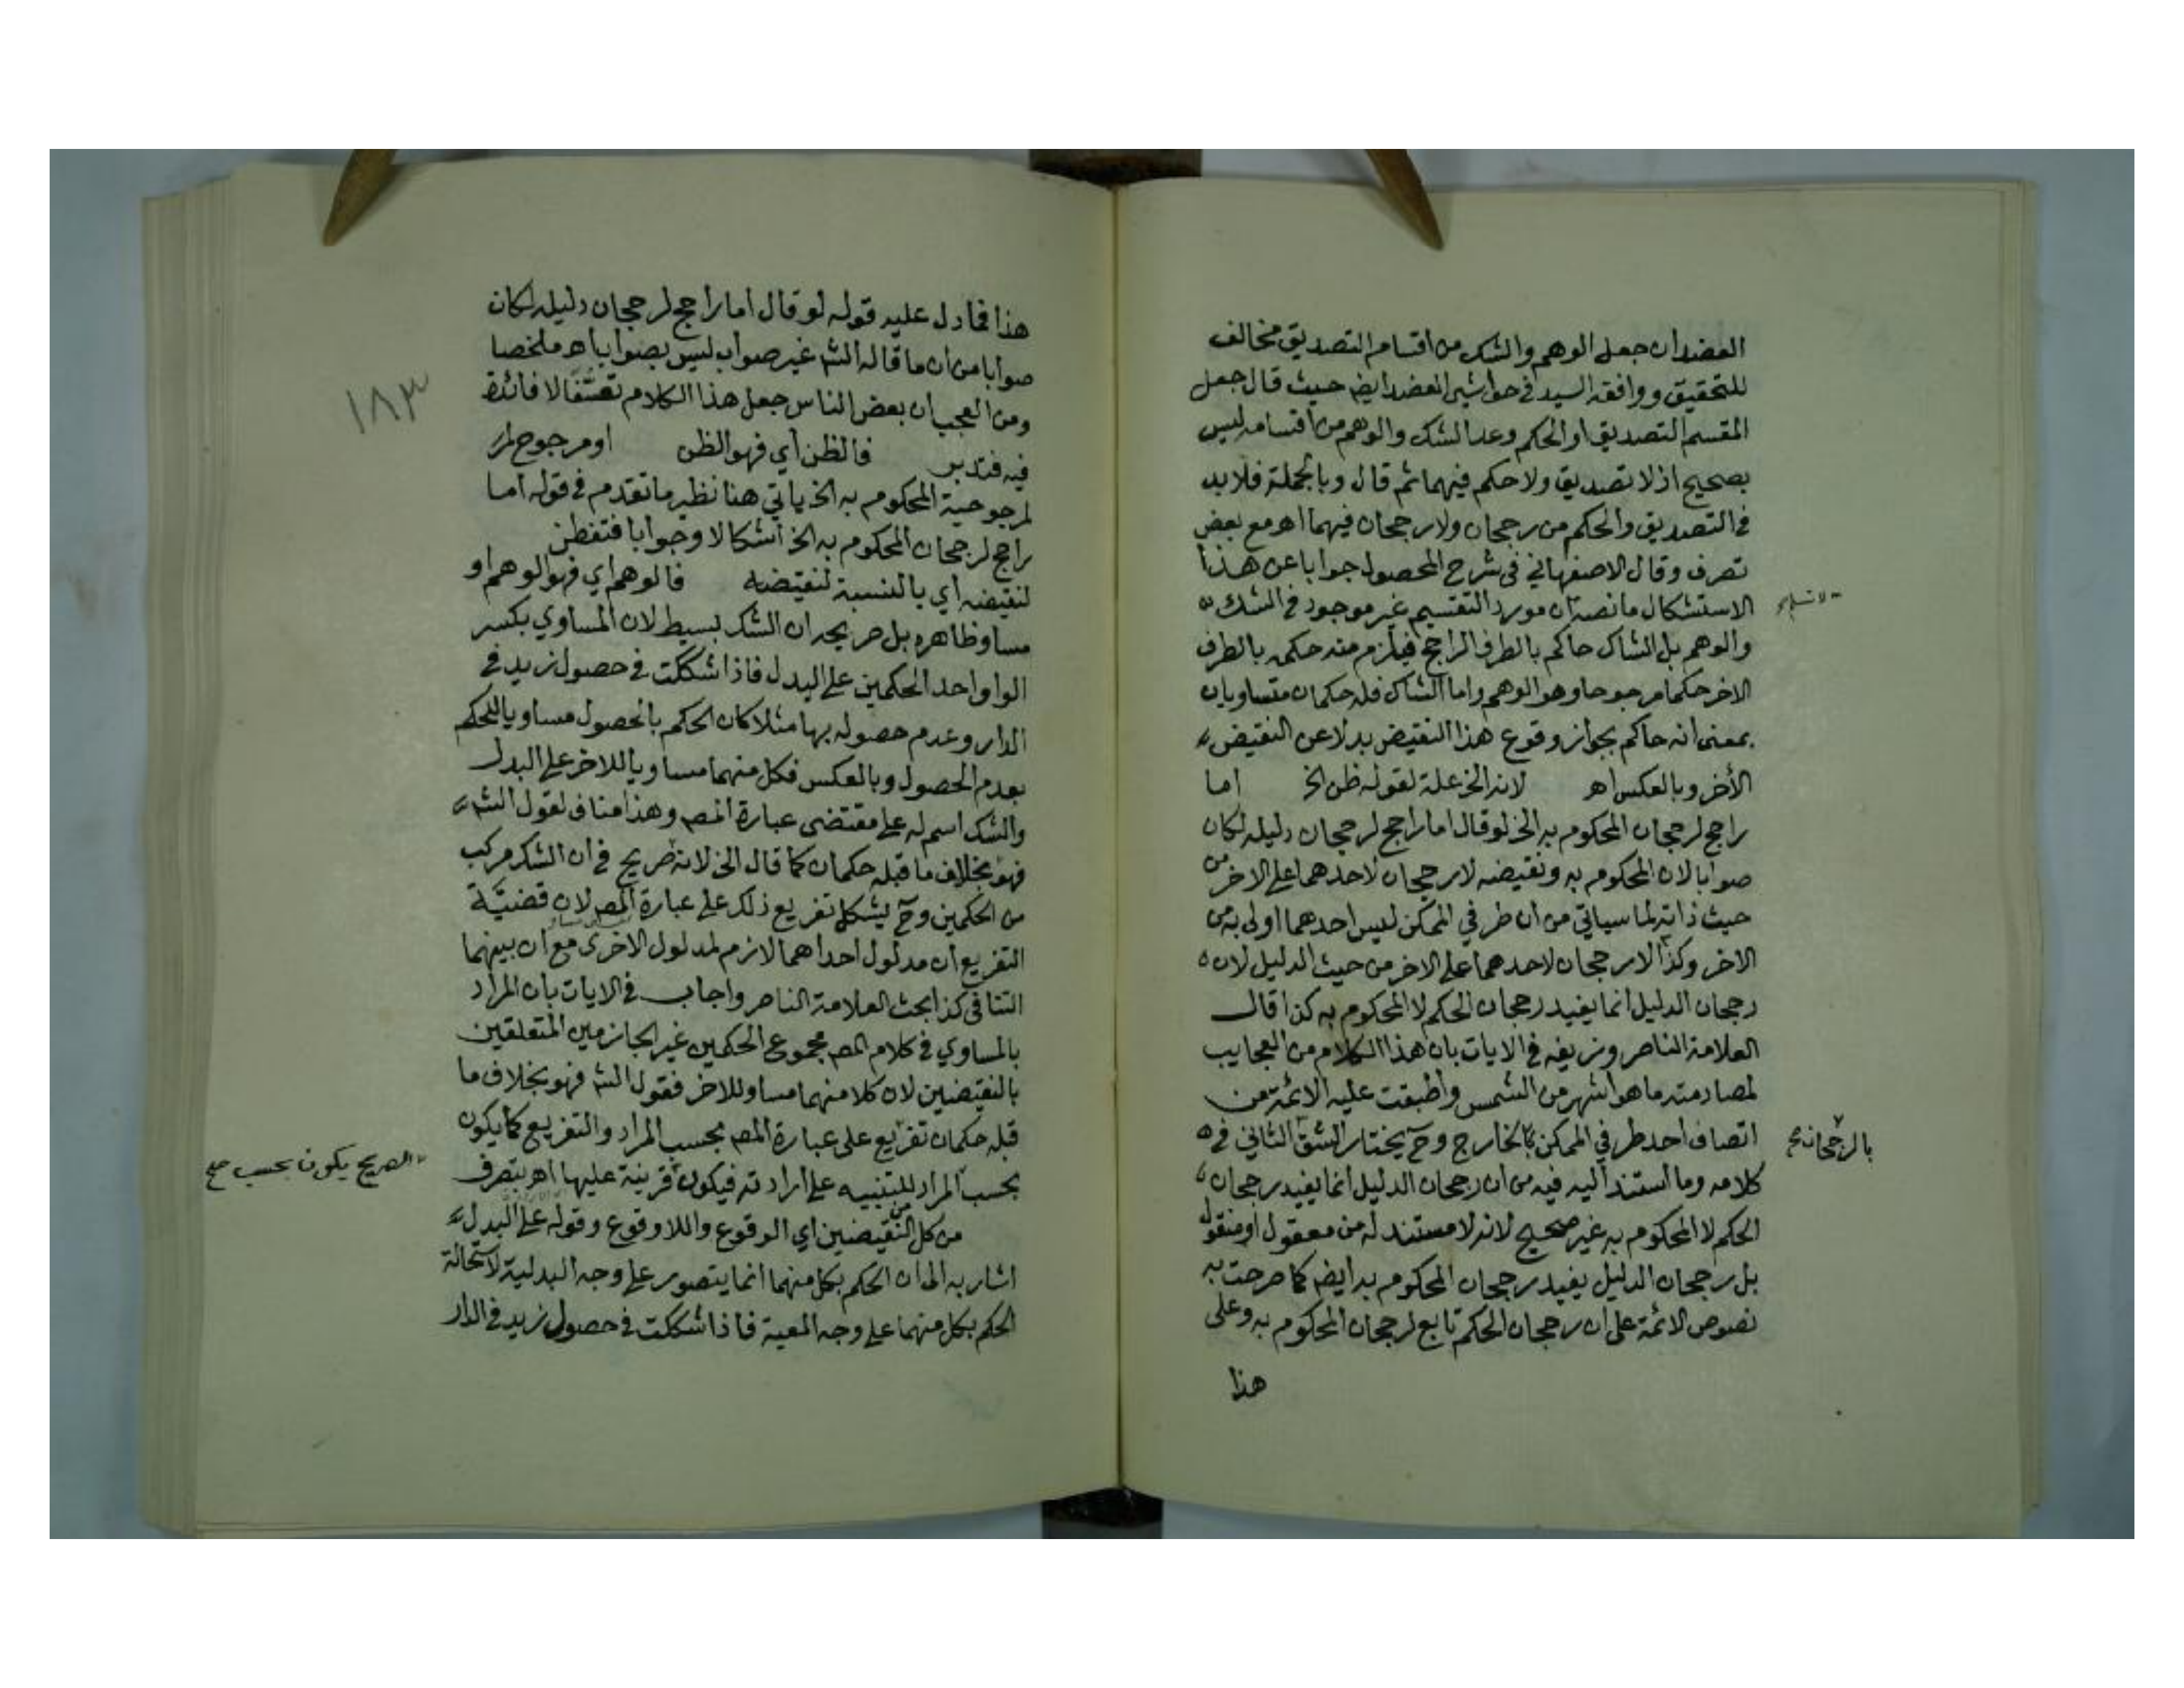 العضد ان جعل الوهم والشك من اقسام التصديق مخالف
للتحقيق ووافقه السيد في حواشي العضد ايضا حيث قال جعل
المقسم التصديق او الحكم وعد الشك والوهم من اقسامه ليس
بصحيح اذ لا تصديق ولا حكم فيهما ثم قال وبالجملة فلا بد
في التصديق والحكم من رجحان ولا رجحان فيهما اهـ مع بعض
تصرف وقال الاصفهاني في شرح المحصول جوابا عن هذا
الاستشكال ما نصه ان مورد التقسيم غير موجود في الشك
والوهم بل الشاك حاكم بالطرف الراجح فيلزم منه حكمه بالطرف
الاخر حكما مرجوحا وهو الوهم واما الشاك فله حكمان متساويان
بمعنى انه حاكم بجواز وقوع هذا النقيض بدلا عن النقيض
الأخر وبالعكس اهـ لانه الخ علة لقوله ظن الخ اما
راجح لرجحان المحكوم به الخ لو قال اما راجح لرجحان دليله لكان
صوابا لان المحكوم به ونقيضه لا رجحان لاحدهما على الاخر من
حيث ذاته لما سياتي من ان طرفي الممكن ليس احدهما اولى به من
الاخر وكذا لا رجحان لاحدهما على الاخر من حيث الدليل لان
رجحان الدليل انما يفيد رجحان الحكم لا المحكوم به كذا قال
العلامة الناصر وزيفه في الايات بان هذا الكلام من العجايب
لمصادمته ما هو اشهر من الشمس واطبقت عليه الائمة من
اتصاف احد طرفي الممكن بالخارج وح يختار الشق الثاني في
كلامه وما استند اليه فيه من ان رجحان الدليل انما يفيد رجحان
الحكم لا المحكوم به غير صحيح لانه لا مستند له من معقول او منقول
بل رجحان الدليل يفيد رجحان المحكوم به ايضا كما صرحت به
نصوص الائمة على ان رجحان الحكم تابع لرجحان المحكوم به وعلى
هذا
بالرجحانية
هذا فما دل عليه قوله لو قال اما راجح لرجحان دليله لكان
صوابا من ان ما قاله الشـ غير صواب ليس بصواب اهـ ملخصا
ومن العجب ان بعض الناس جعل هذا الكلام تعسفا لا فائدة
فيه فتدبر فالظن اي فهو الظن او مرجوح لمـ
لمرجوحية المحكوم به الخ ياتي هنا نظير ما تقدم في قوله اما
راجح لرجحان المحكوم به الخ اشكالا وجوابا فتفطن
لنقيضه اي بالنسبة لنقيضه فالوهم اي فهو الوهم او
مساو ظاهره بل صريحه ان الشك بسيط لان المساوي بكسر
الواو احد الحكمين على البدل فاذا شككت في حصول زيد في
الدار وعدم حصوله بها مثلا كان الحكم بالحصول مساويا للحكم
بعدم الحصول وبالعكس فكل منهما مساويا للاخر على البدل
والشك اسم له على مقتضى عبارة المصـ وهذا مناف لقول الشـ
فهو بخلاف ما قبله حكمان كما قال الخ لانه صريح في ان الشك مركب
من الحكمين وح يشكل تفريع ذلك على عبارة المصـ لان قضيَّة
التفريع ان مدلول احداهما لازم لمدلول الاخرى مع ان بينهما
التنافي كذا بحث العلامة الناصر واجاب في الايات بان المراد
بالمساوي في كلام المصـ مجموع الحكمين غير الجازمين المتعلقين
بالنقيضين لان كلا منهما مساو للاخر فقول الشـ فهو بخلاف ما
قبله حكمان تفريع على عبارة المصـ بحسب المراد والتفريع كما يكون
بحسب المراد للتنبيه على ارادته فيكون قرينة عليها اهـ بتصرف
من كل من النقيضين اي الوقوع واللاوقوع وقوله على البدل
اشار به الى ان الحكم بكل منهما انما يتصور على وجه البدلية لاستحالة
الحكم بكل منهما على وجه المعية فاذا شككت في حصول زيد في الدار
الصريح يكون بحسب صح
١٨٣